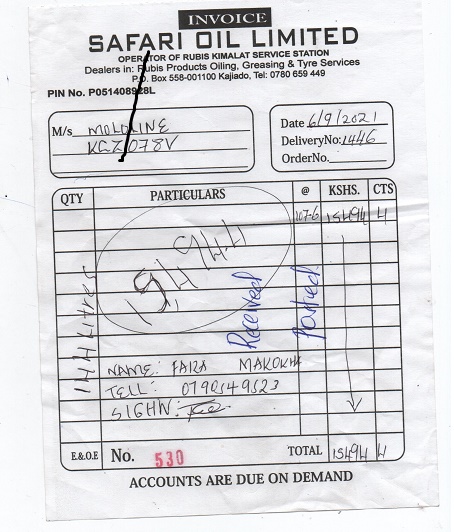 INVOICE
SAFARI OIL LIMITED
OPERATOR OF RUBIS KIMALAT SERVICE STATION
Dealers in: Rubis Products Oiling, Greasing & Tyre Services
P.O. Box 558-001100 Kajiado, Tel: 0780 659 449
PIN No. P051408928L
M/s MOLOLINE
KCZ 078V
Date 6/9/2021
DeliveryNo: 1446
OrderNo.
QTY PARTICULARS @ KSHS. CTS
107-6 15494 4
144 Litres
15,494.4
Received Posted
NAME: FAIZA MAKOKHA
TELL: 0790549523
SIGHN:
E.&O.E No. 530 TOTAL 15494 4
ACCOUNTS ARE DUE ON DEMAND